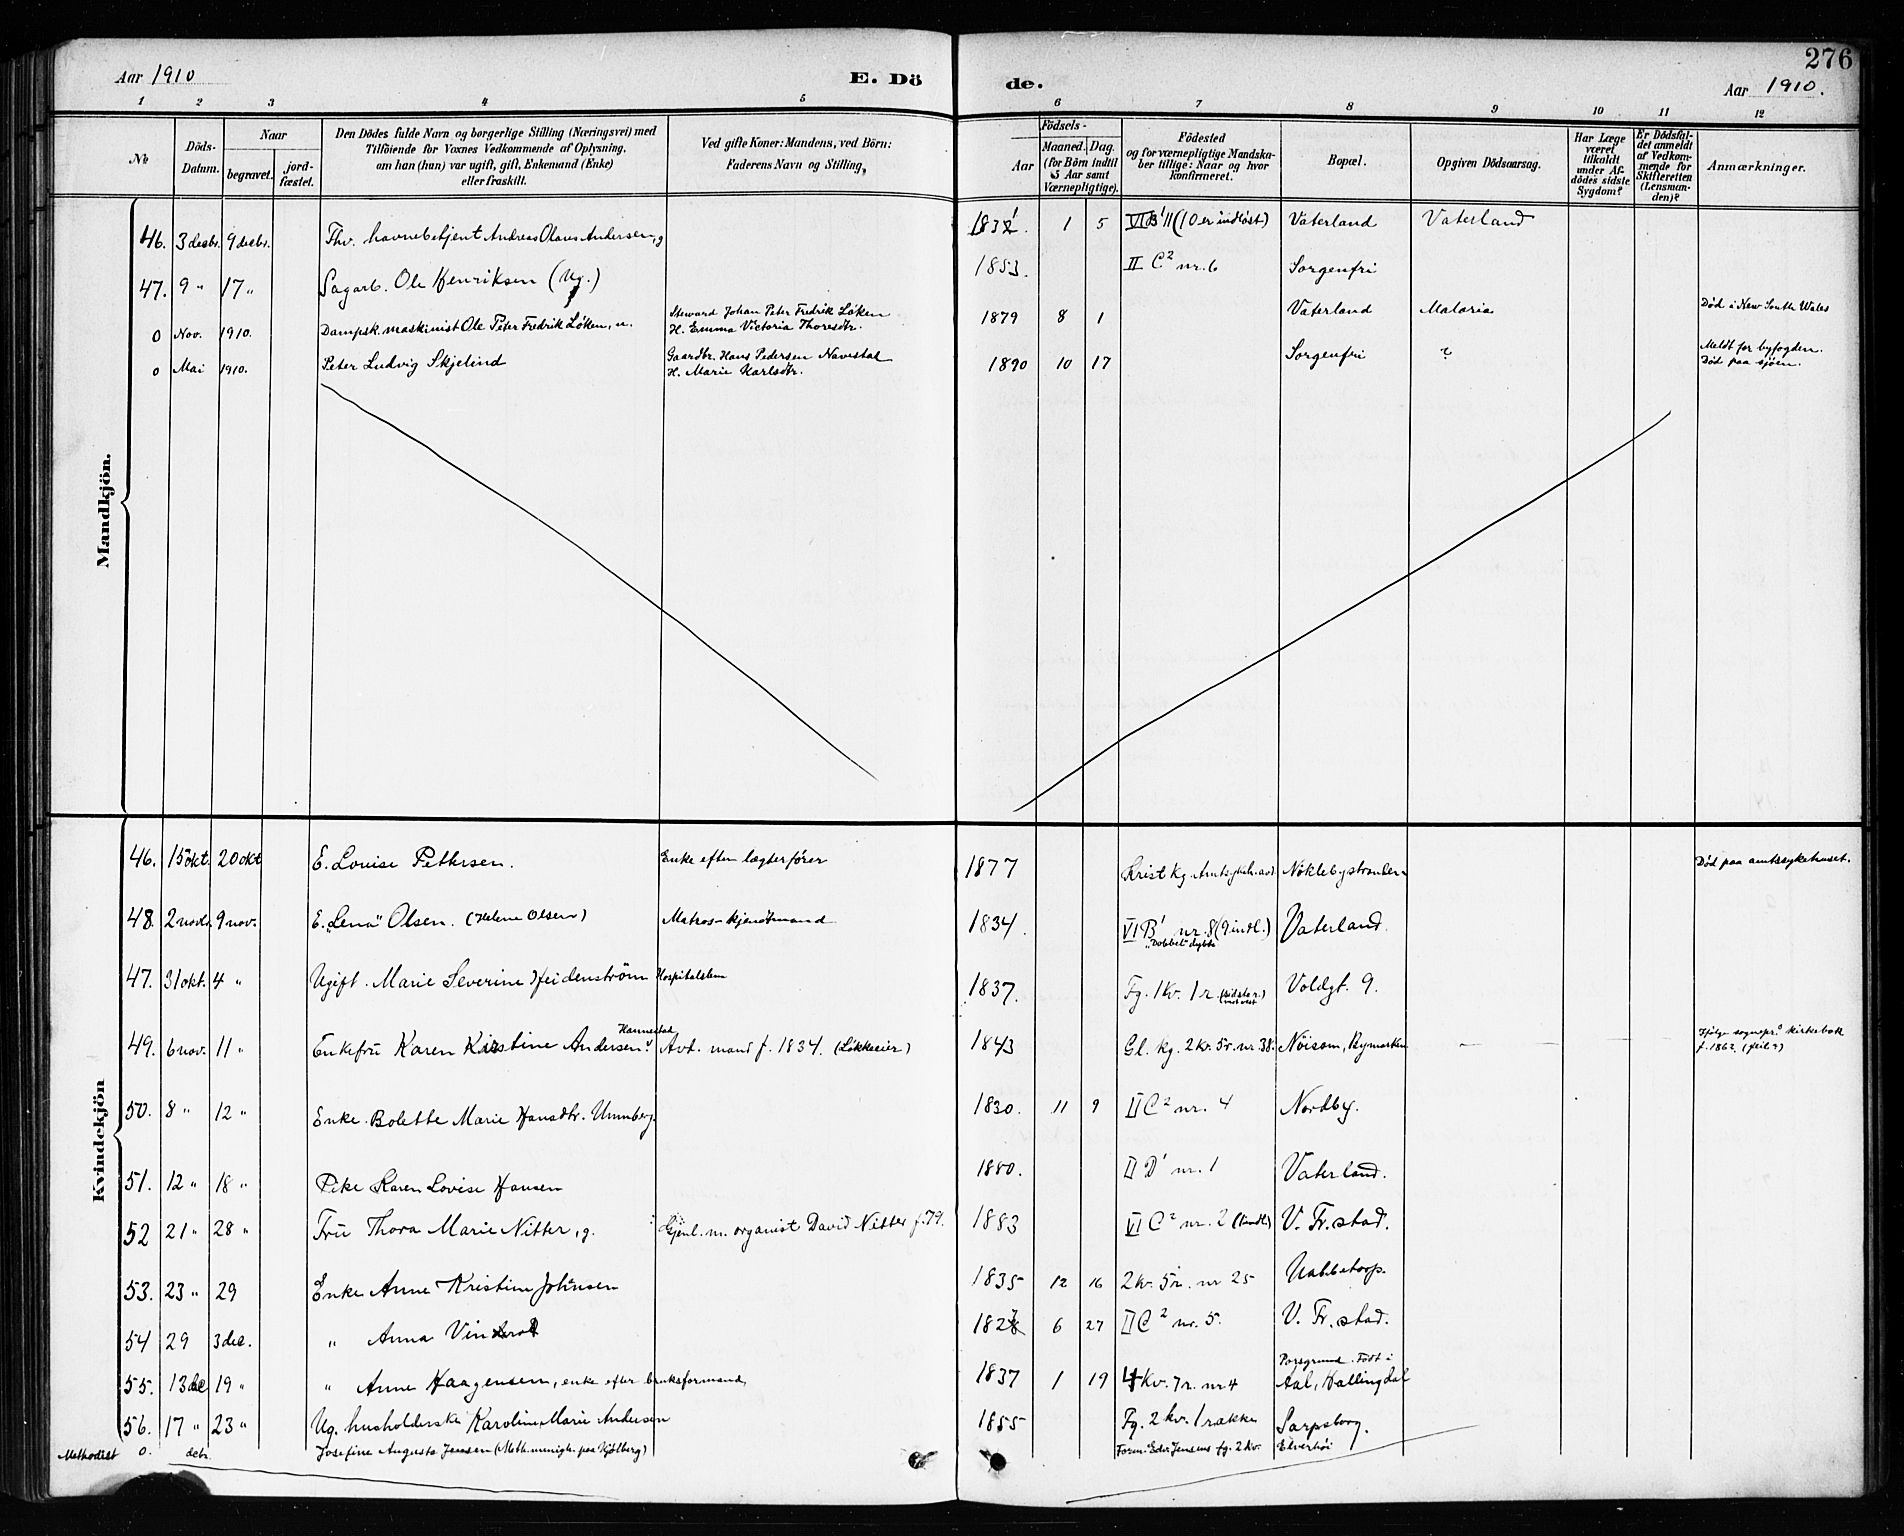 276
Aar 1910
E. Dö
de.
Aar 1910.
1 2 3 4 5 6 7 8 9 10 11 12
No
Döds-Datum.
Naar
begravet.
jord-fæstet.
Den Dödes fulde Navn og borgerlige Stilling (Næringsvei) med
Tilföiende for Voxnes Vedkommende af Oplysning,
om han (hun) var ugift, gift, Enkemand (Enke)
eller fraskilt.
Ved gifte Koner: Mandens, ved Börn:
Faderens Navn og Stilling,
Födsels-
Aar
Maaned. Dag.
(for Börn indtil
5 Aar samt
Værnepligtige).
Födested
og for værnepligtige Mandska-
ber tillige: Naar og hvor
konfirmeret.
Bopæl.
Opgiven Dödsaarsag.
Har Læge
været
tilkaldt
under Af-
dödes sidste
Sygdom?
Er Dödsfal-
det anmeldt
af Vedkom-
mende for
Skifteretten
(Lensman-
den)?
Anmærkninger.
Mandkjön.
46. 3 decbr. 9 decbr. Thv. havnebetjent Andreas Olaus Andersen, g 1831. 1 5 VI B' 11 (10 er indløst) Vaterland Vaterland
47. 9 " 17 " Sagarb. Ole Henriksen (Ug.) 1853. II C² nr. 6 Sorgenfri
0 Nov. 1910. Dampsk. maskinist Ole Peter Fredrik Løken, u. Steward Johan Peter Fredrik Løken
H. Emma Victoria Thoresdtr. 1879 8 1 Vaterland Malaria Død i New South Wales
0 Mai 1910. Peter Ludvig Skjelind Gaardbr. Hans Pedersen Navestal
H. Marie Karlsdtr. 1890 10 17 Sorgenfri ? Meldt for byfogden.
Död paa sjøen.
Kvindekjön
46. 15 okt 20 okt E. Louise Pettersen. Enke efter lægterfører 1877 Krist kg. Nöklebystranden Död paa amtssykehuset.
48. 2 novb. 9 nov. E. "Lena" Olsen. (Helene Olsen) Matros-kjendtmand 1834. VI B' nr. 8 (9 indl.) Vaterland.
"Dobbelt" dybte
47. 31 okt. 4 " Ugift. Marie Severine Heidenström Hospitalslem 1837. Fg. 1 Kv. 1 r. Voldgt. 9.
Hannestad
49. 6 nov. 11 " Enkefru Karen Kirstine Andersen Avd. mand f. 1834. (Løkkeeier) 1843 Gl. kg. 2 Kv. 5 r. nr. 38. Nöisom, Bymarken Ifølge sognepr. kirkebok
f. 1862. (feil?)
50. 8 " 12 " Enke. Bolette Marie Hansdtr. Unnberg. 1830. 11 9 II C² nr. 4 Nordby.
51. 12 " 18 " Pike Karen Lovise Hansen 1880. II D' nr. 1 Vaterland.
52 21 " 28 " Fru Thora Marie Nitter, g. Gjenl. m. organist David Nitter f. 79. 1883 VI C² nr. 2 V. Fr.stad.
53. 23 " 29 Enke Anne Kristine Johnsen 1835 12 16 2 kv. 5 r. nr 25 Kabbetorp.
54 29 3 dec. " Anna 1827 6 27 II C² nr. 5. V. Fr.stad.
55. 13 dec 19 " " Anne Haagensen, enke efter bruksformand, 1837 1 19 4 Kv. 7 r. nr. 4 Porsgrund. Født i
Aal, Hallingdal
56. 17 " 23 " Ug. husholderske Karoline Marie Andersen 1855 Fg. 2 kv. 1 række Sarpsborg.
Methodist 0. debr. Josefine Augusta Jensen (Meth.menigh. paa Kjölberg) Form. Edv. Jensens fg. 2 kv. Elverhöi